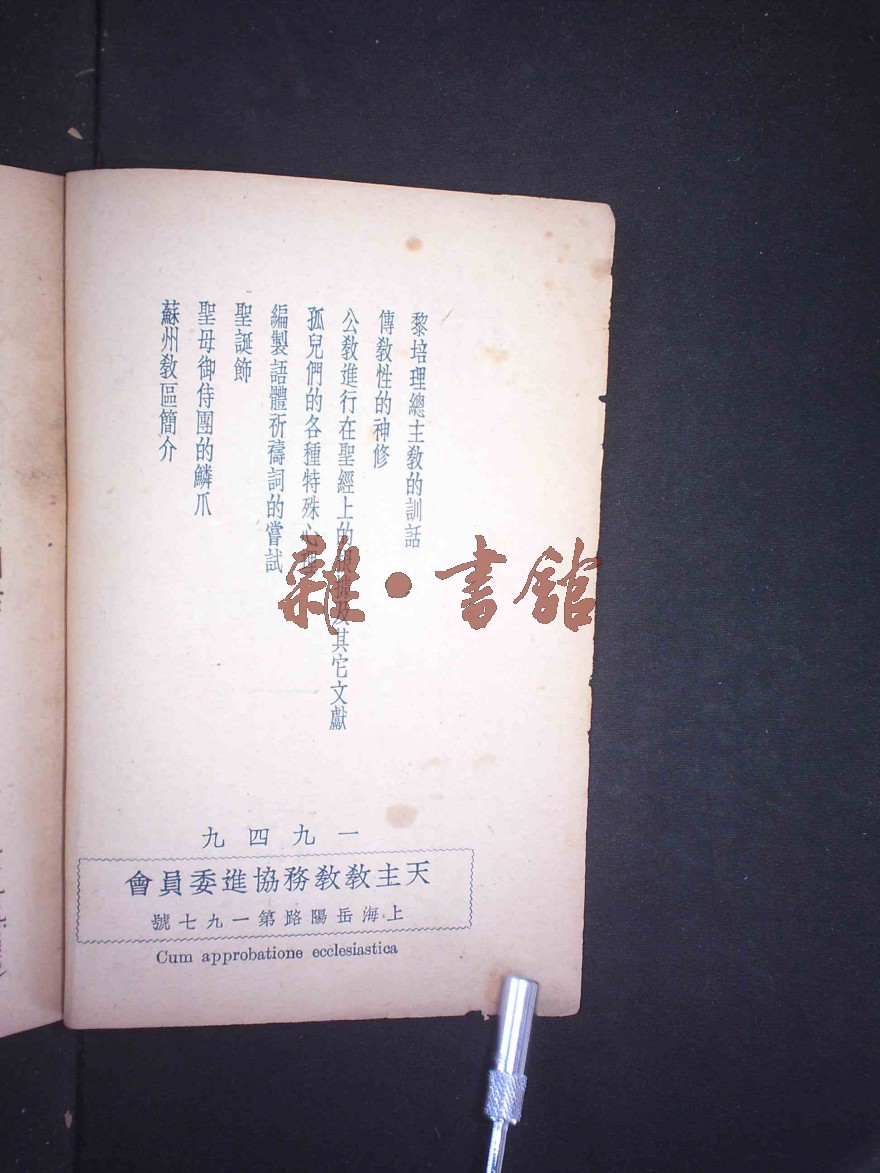 黎培理總主教的訓話
傳教性的神修
公教進行在聖經上的根據及其它文獻
孤兒們的各種特殊心理
編製語體祈禱詞的嘗試
聖誕節
聖母御侍團的鱗爪
蘇州教區簡介
雜·書館
一九四九
天主教教務協進委員會
上海岳陽路第一九七號
Cum approbatione ecclesiastica